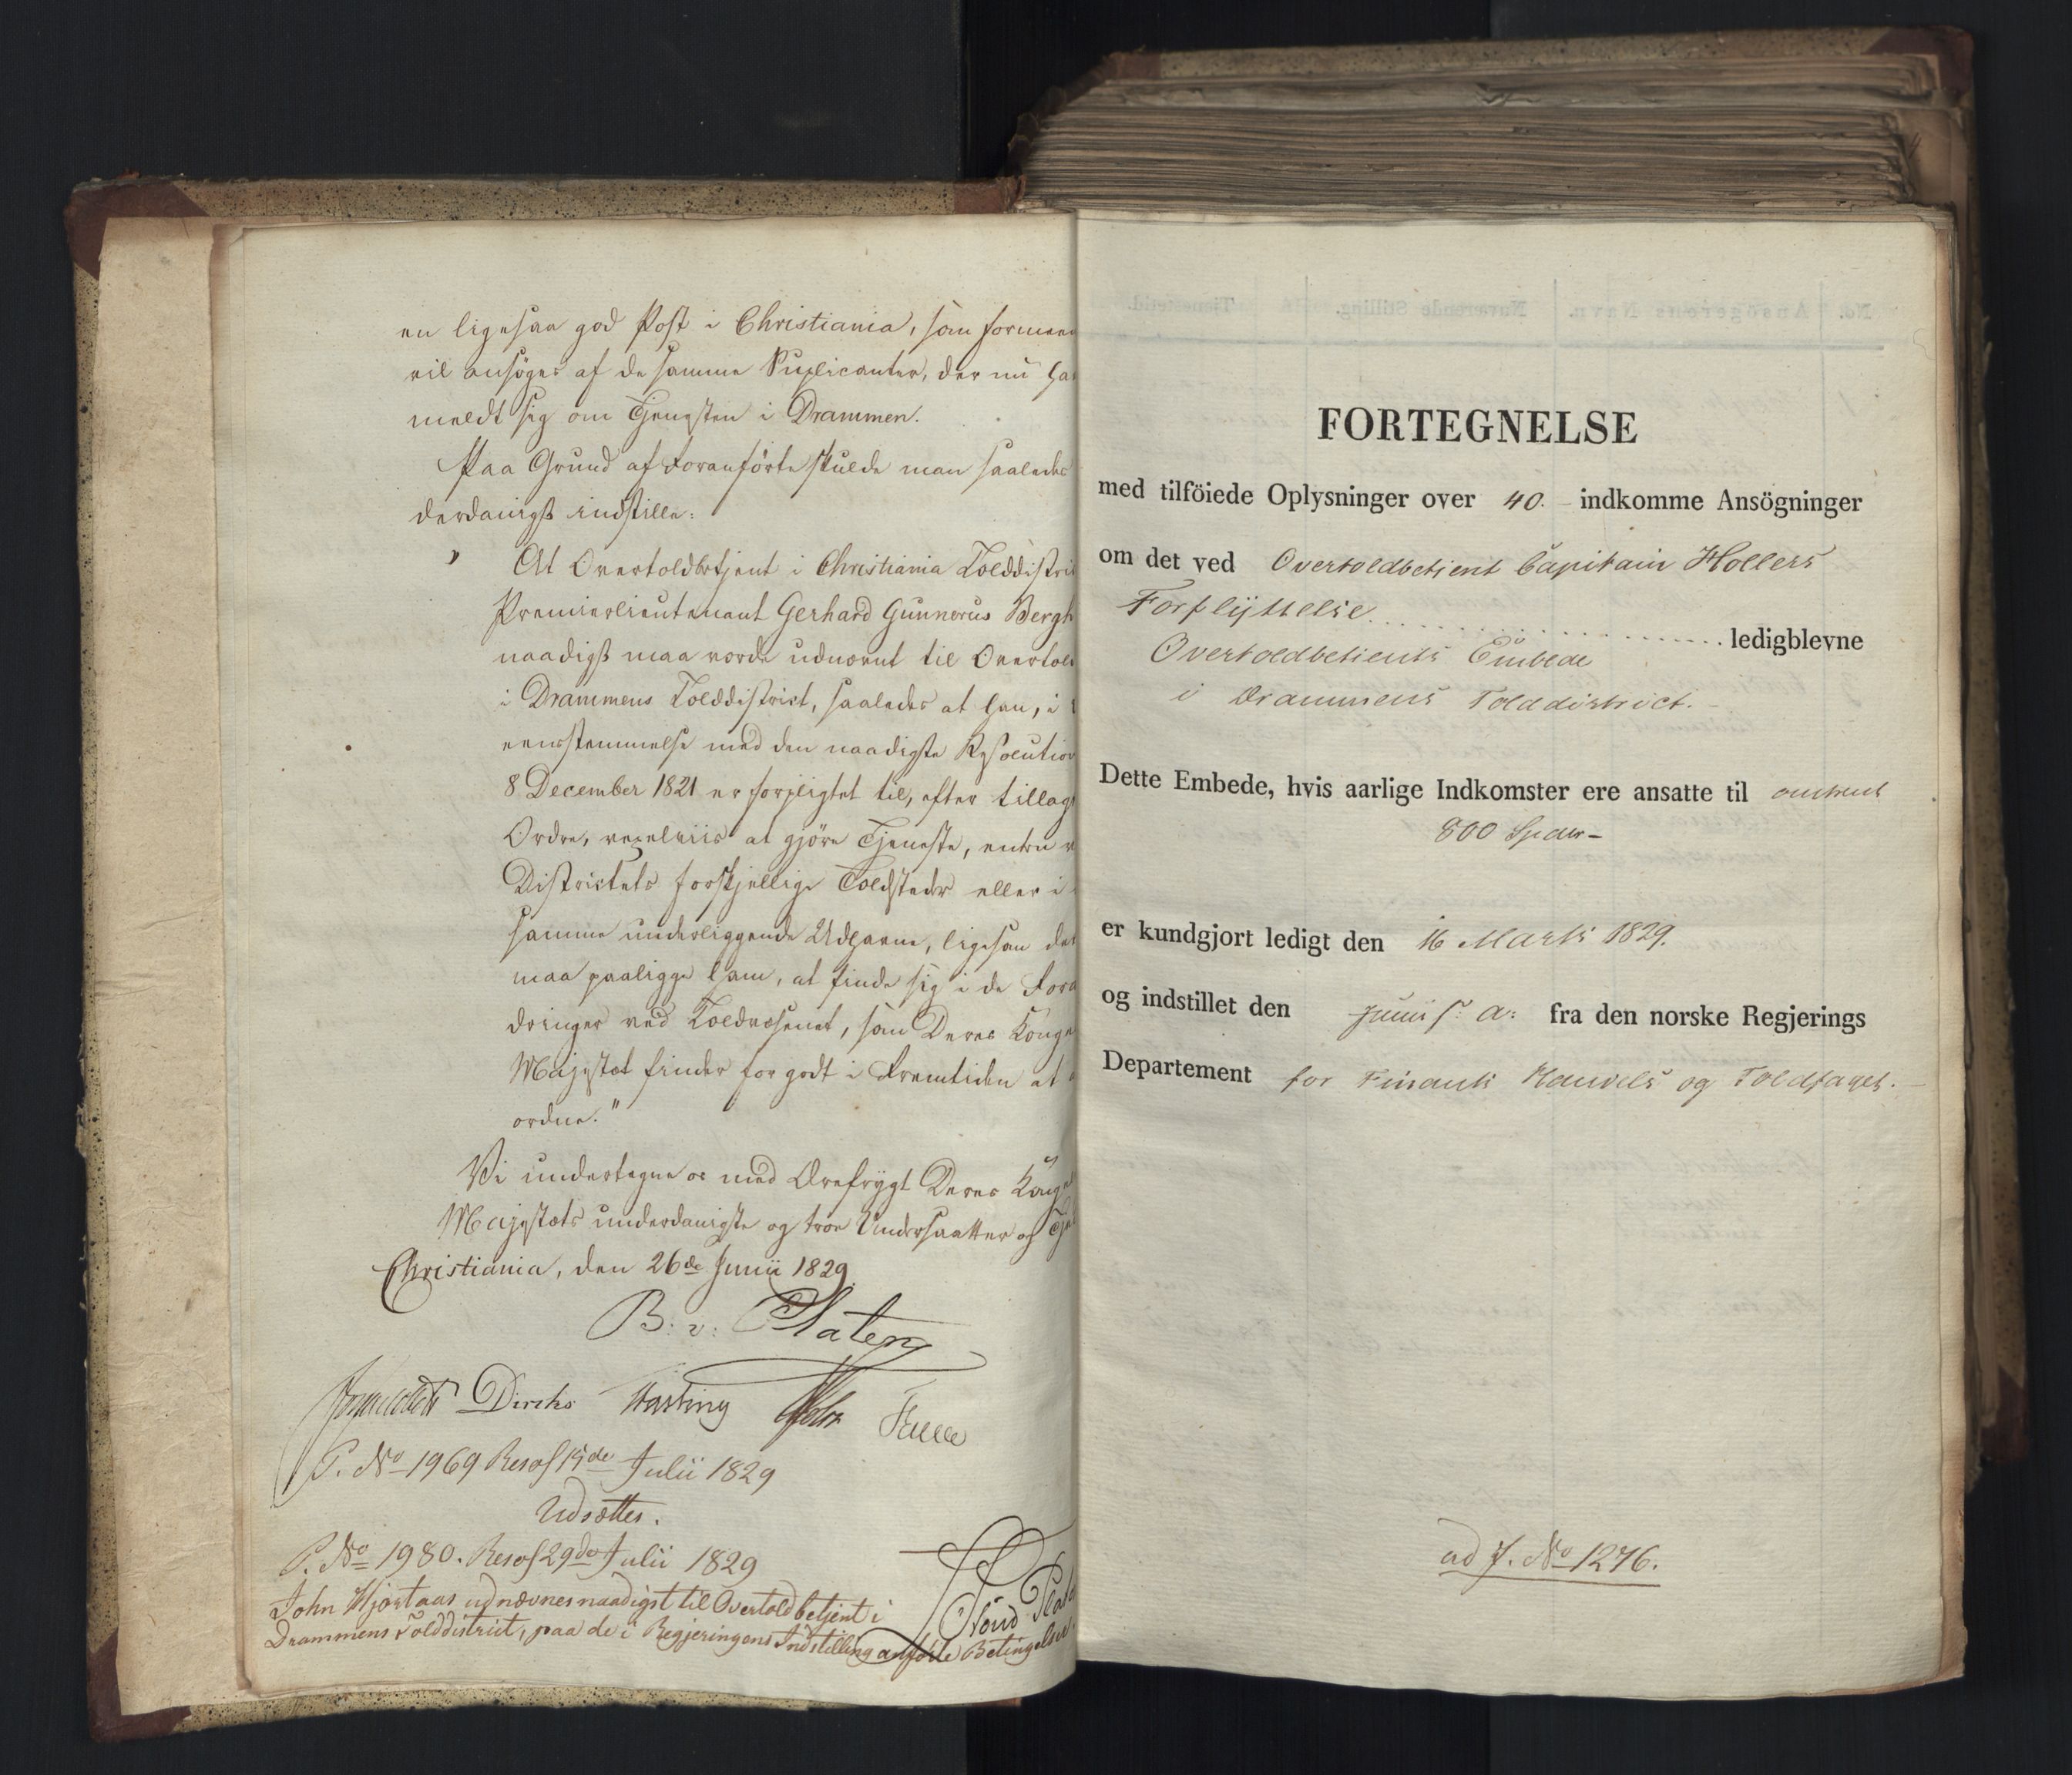 en ligesaa god Post i Christiania, som formeen
vil ansøges af de samme Suplicanter, der nu ha
meldt sig om Tjenesten i Drammen.
Paa Grund af Foranførte skulde man saaledes
derdanigst indstille:
" At Overtoldbetjent i Christiania Tolddistri
Premierlieutenant Gerhard Gunnerus Bergh
naadigst maa vorde udnævnt til Overtold
i Drammens Tolddistrict, saaledes at han, i
eensstemmelse med den naadigste Resolution
8 December 1821 er forpligtet til, efter tillagt
Ordre, vexelviis at gjøre Tjeneste, enten v
Districtets forskjellige Toldsteder eller i
samme underliggende Udhavne, ligesom det
maa paaligge ham, at finde sig i de Fora
dringer ved Toldvæsenet, som Deres Konge
Majestæt finder for godt i Fremtiden at a
ordne."
Vi undertegne os med Ærefrygt Deres Konge
Majestæts underdanigste og troe Undersaatter og Tje
Christiania, den 26de Junii 1829.
B: v: Platen
Diriks Fasting Falsen
P. No 1969 Resol 15de Julii 1829
Udsættes.
P. No 1980. Resol 29de Julii 1829
John Hjortaas udnævnes naadigst til Overtoldbetjent i
Drammens Tolddistrict, paa de i Regjeringens Indstilling anførte Betingelser.
FORTEGNELSE
med tilföiede Oplysninger over 40. indkomme Ansögninger
om det ved Overtoldbetient Capitain Hollers
Forflyttelse ledigblevne
Overtoldbetients Embede
i Drammens Tolddistrict.
Dette Embede, hvis aarlige Indkomster ere ansatte til omtrent
800 Spdlr
er kundgjort ledigt den 16 Marts 1829.
og indstillet den Junii s: a: fra den norske Regjerings
Departement for Finants Handels og Toldfaget.
ad J. No 1276.